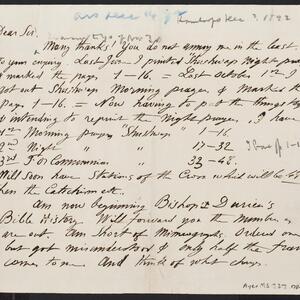 Kamloops Dec 3, 1892
Dear Sir.
Many thanks! You do not annoy me in the least
by your enquiry. Last I printed "Shushwap Night prayers
& marked the pages 1-16. = Last October 1st I
got out Shushwap Morning prayers & marked the
page 1-16. = Now having to put the things together
& intending to reprint the night prayers, I have
1st Morning prayers "Shushwap" 1-16.
2nd Night " " 17-32
3rd For Communion " 33-48.
Will soon have Stations of the Cross which will be
then the Catechism etc.
I am now beginning Bishop Durieu's
Bible History. Will forward you the numbers
are out. Am short of Mimeographs. Ordered one
but got misunderstood & only half the
comes to me. And think of what